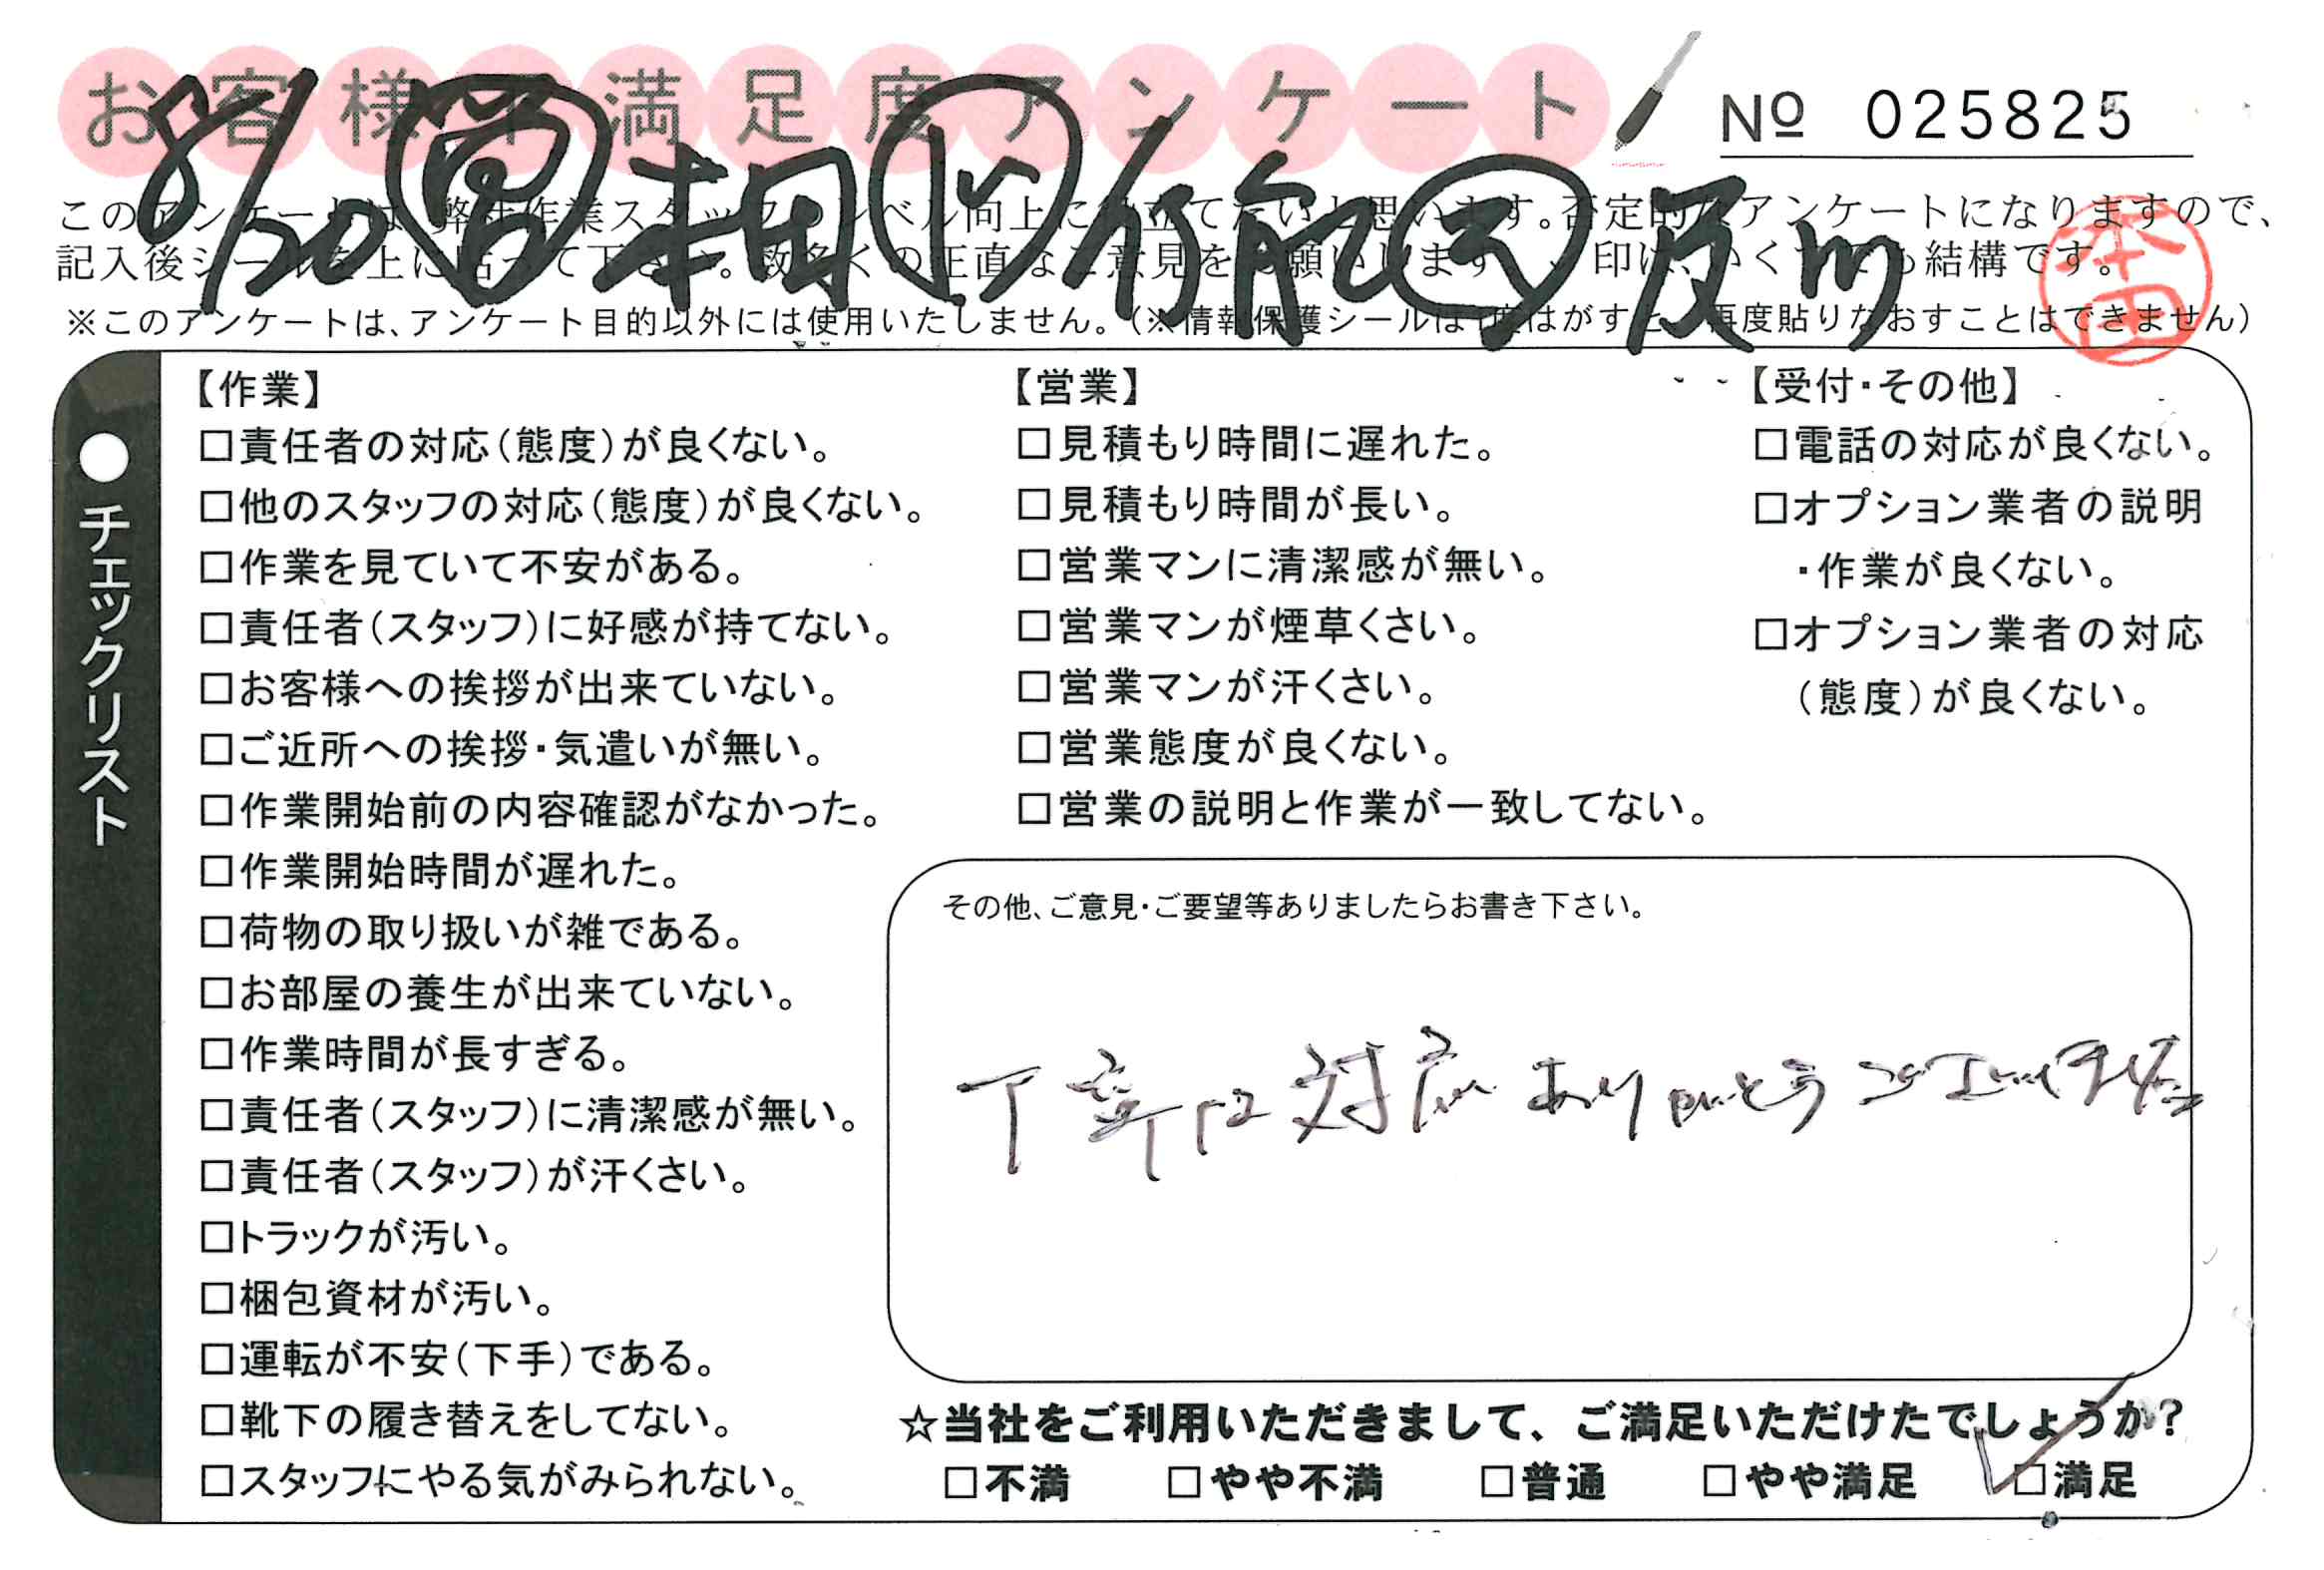 お客様不満足度アンケート
№ 025825
8/20 営 本田
このアンケートは、弊社作業スタッフのレベル向上に役立てたいと思います。否定的なアンケートになりますので、
記入後シールを上に貼って下さい。数多くの正直なご意見をお願いします
印は、いくつでも結構です。
※このアンケートは、アンケート目的以外には使用いたしません。(※情報保護シールは1度はがすと、再度貼りなおすことはできません)
本田
●チェックリスト
【作業】
□責任者の対応(態度)が良くない。
□他のスタッフの対応(態度)が良くない。
□作業を見ていて不安がある。
□責任者(スタッフ)に好感が持てない。
□お客様への挨拶が出来ていない。
□ご近所への挨拶・気遣いが無い。
□作業開始前の内容確認がなかった。
□作業開始時間が遅れた。
□荷物の取り扱いが雑である。
□お部屋の養生が出来ていない。
□作業時間が長すぎる。
□責任者(スタッフ)に清潔感が無い。
□責任者(スタッフ)が汗くさい。
□トラックが汚い。
□梱包資材が汚い。
□運転が不安(下手)である。
□靴下の履き替えをしてない。
□スタッフにやる気がみられない。
【営業】
□見積もり時間に遅れた。
□見積もり時間が長い。
□営業マンに清潔感が無い。
□営業マンが煙草くさい。
□営業マンが汗くさい。
□営業態度が良くない。
□営業の説明と作業が一致してない。
【受付・その他】
□電話の対応が良くない。
□オプション業者の説明
・作業が良くない。
□オプション業者の対応
(態度)が良くない。
その他、ご意見・ご要望等ありましたらお書き下さい。
丁寧な対応ありがとうございました
☆当社をご利用いただきまして、ご満足いただけたでしょうか?
□不満 □やや不満 □普通 □やや満足 □満足